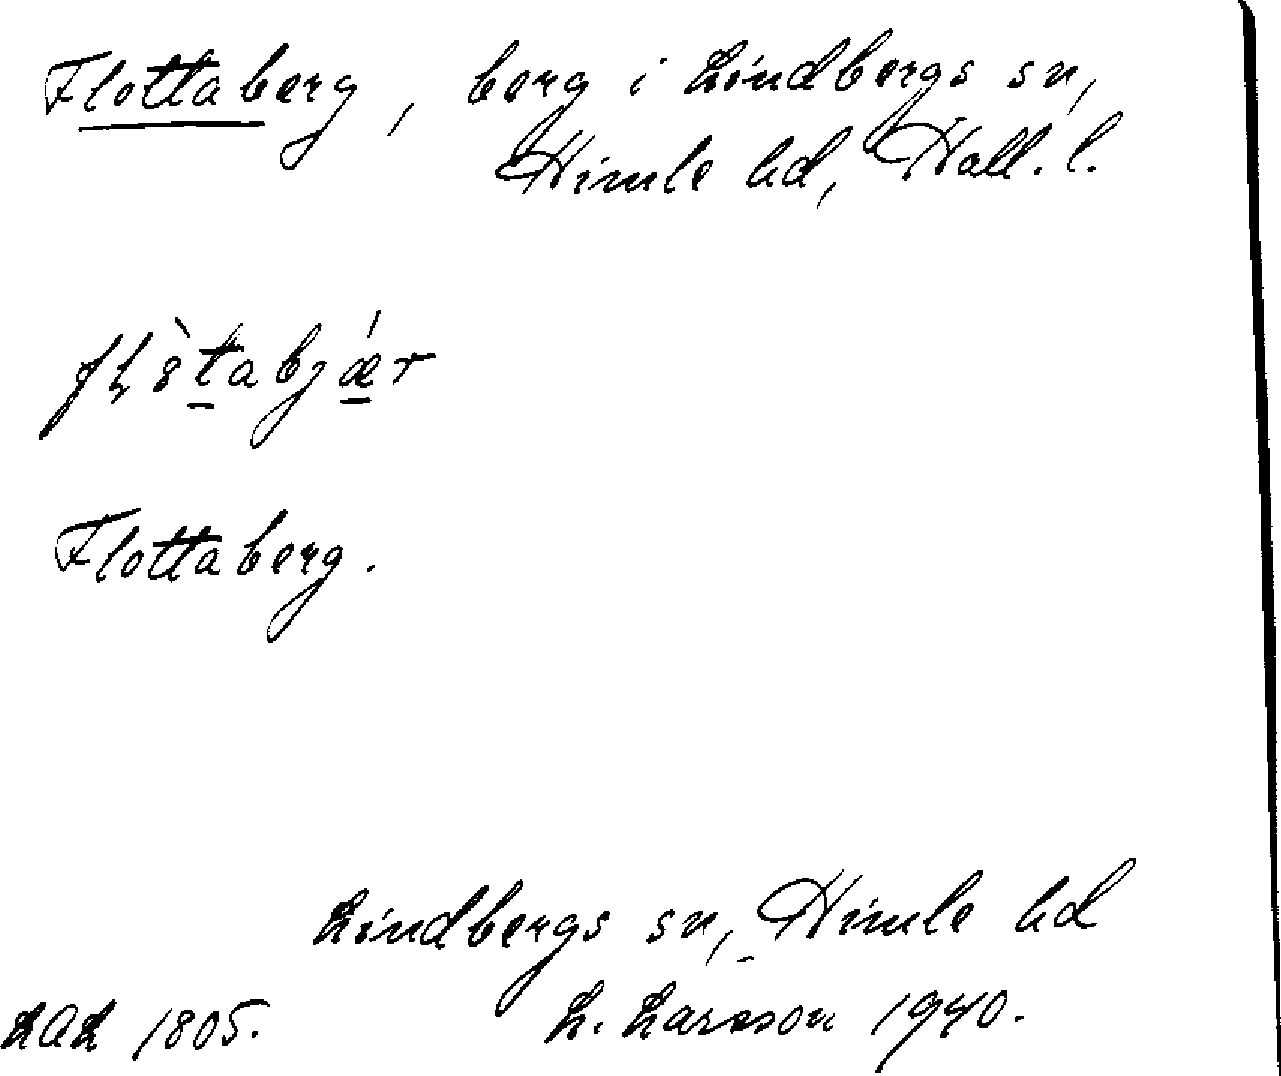 Flottaberg, berg i Lindbergs sn,
Himle hd, Hall. l.
fḷ8̀tabjǽr
Flottaberg.
Lindbergs sn, Himle hd
LAL 1805. L. Larsson 1940.